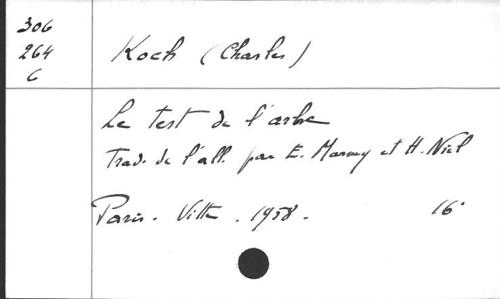 306
264
6
Koch (Charles)
Le test de l'arbre
Trad. de l'all. par E. Marmy et H. Niel
Paris. Vitte. 1958. 16°